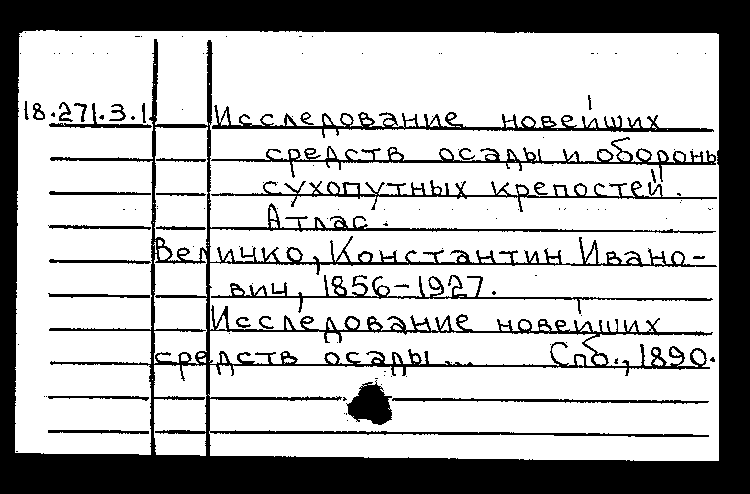 18.271.3.1. Исследование новейших
средств осады и обороны
сухопутных крепостей.
Атлас.
Величко, Константин Ивано-
вич, 1856-1927.
Исследование новейших
средств осады... Спб., 1890.